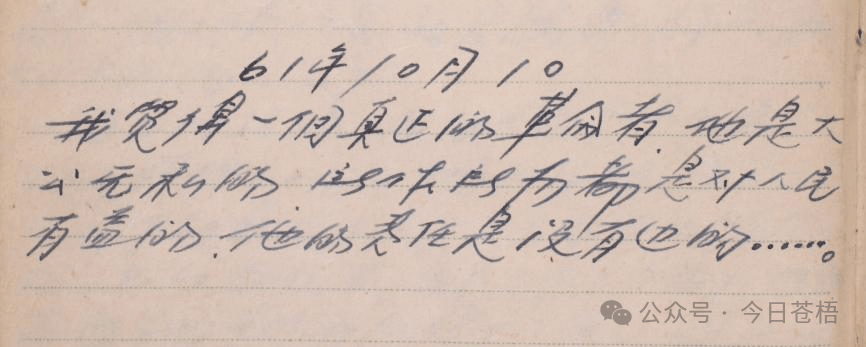 61年10月10
我觉得一個真正的革命者.他是大
公无私的.所作所为都是对人民
有益的.他的责任是没有边的……。
公众号 · 今日苍梧